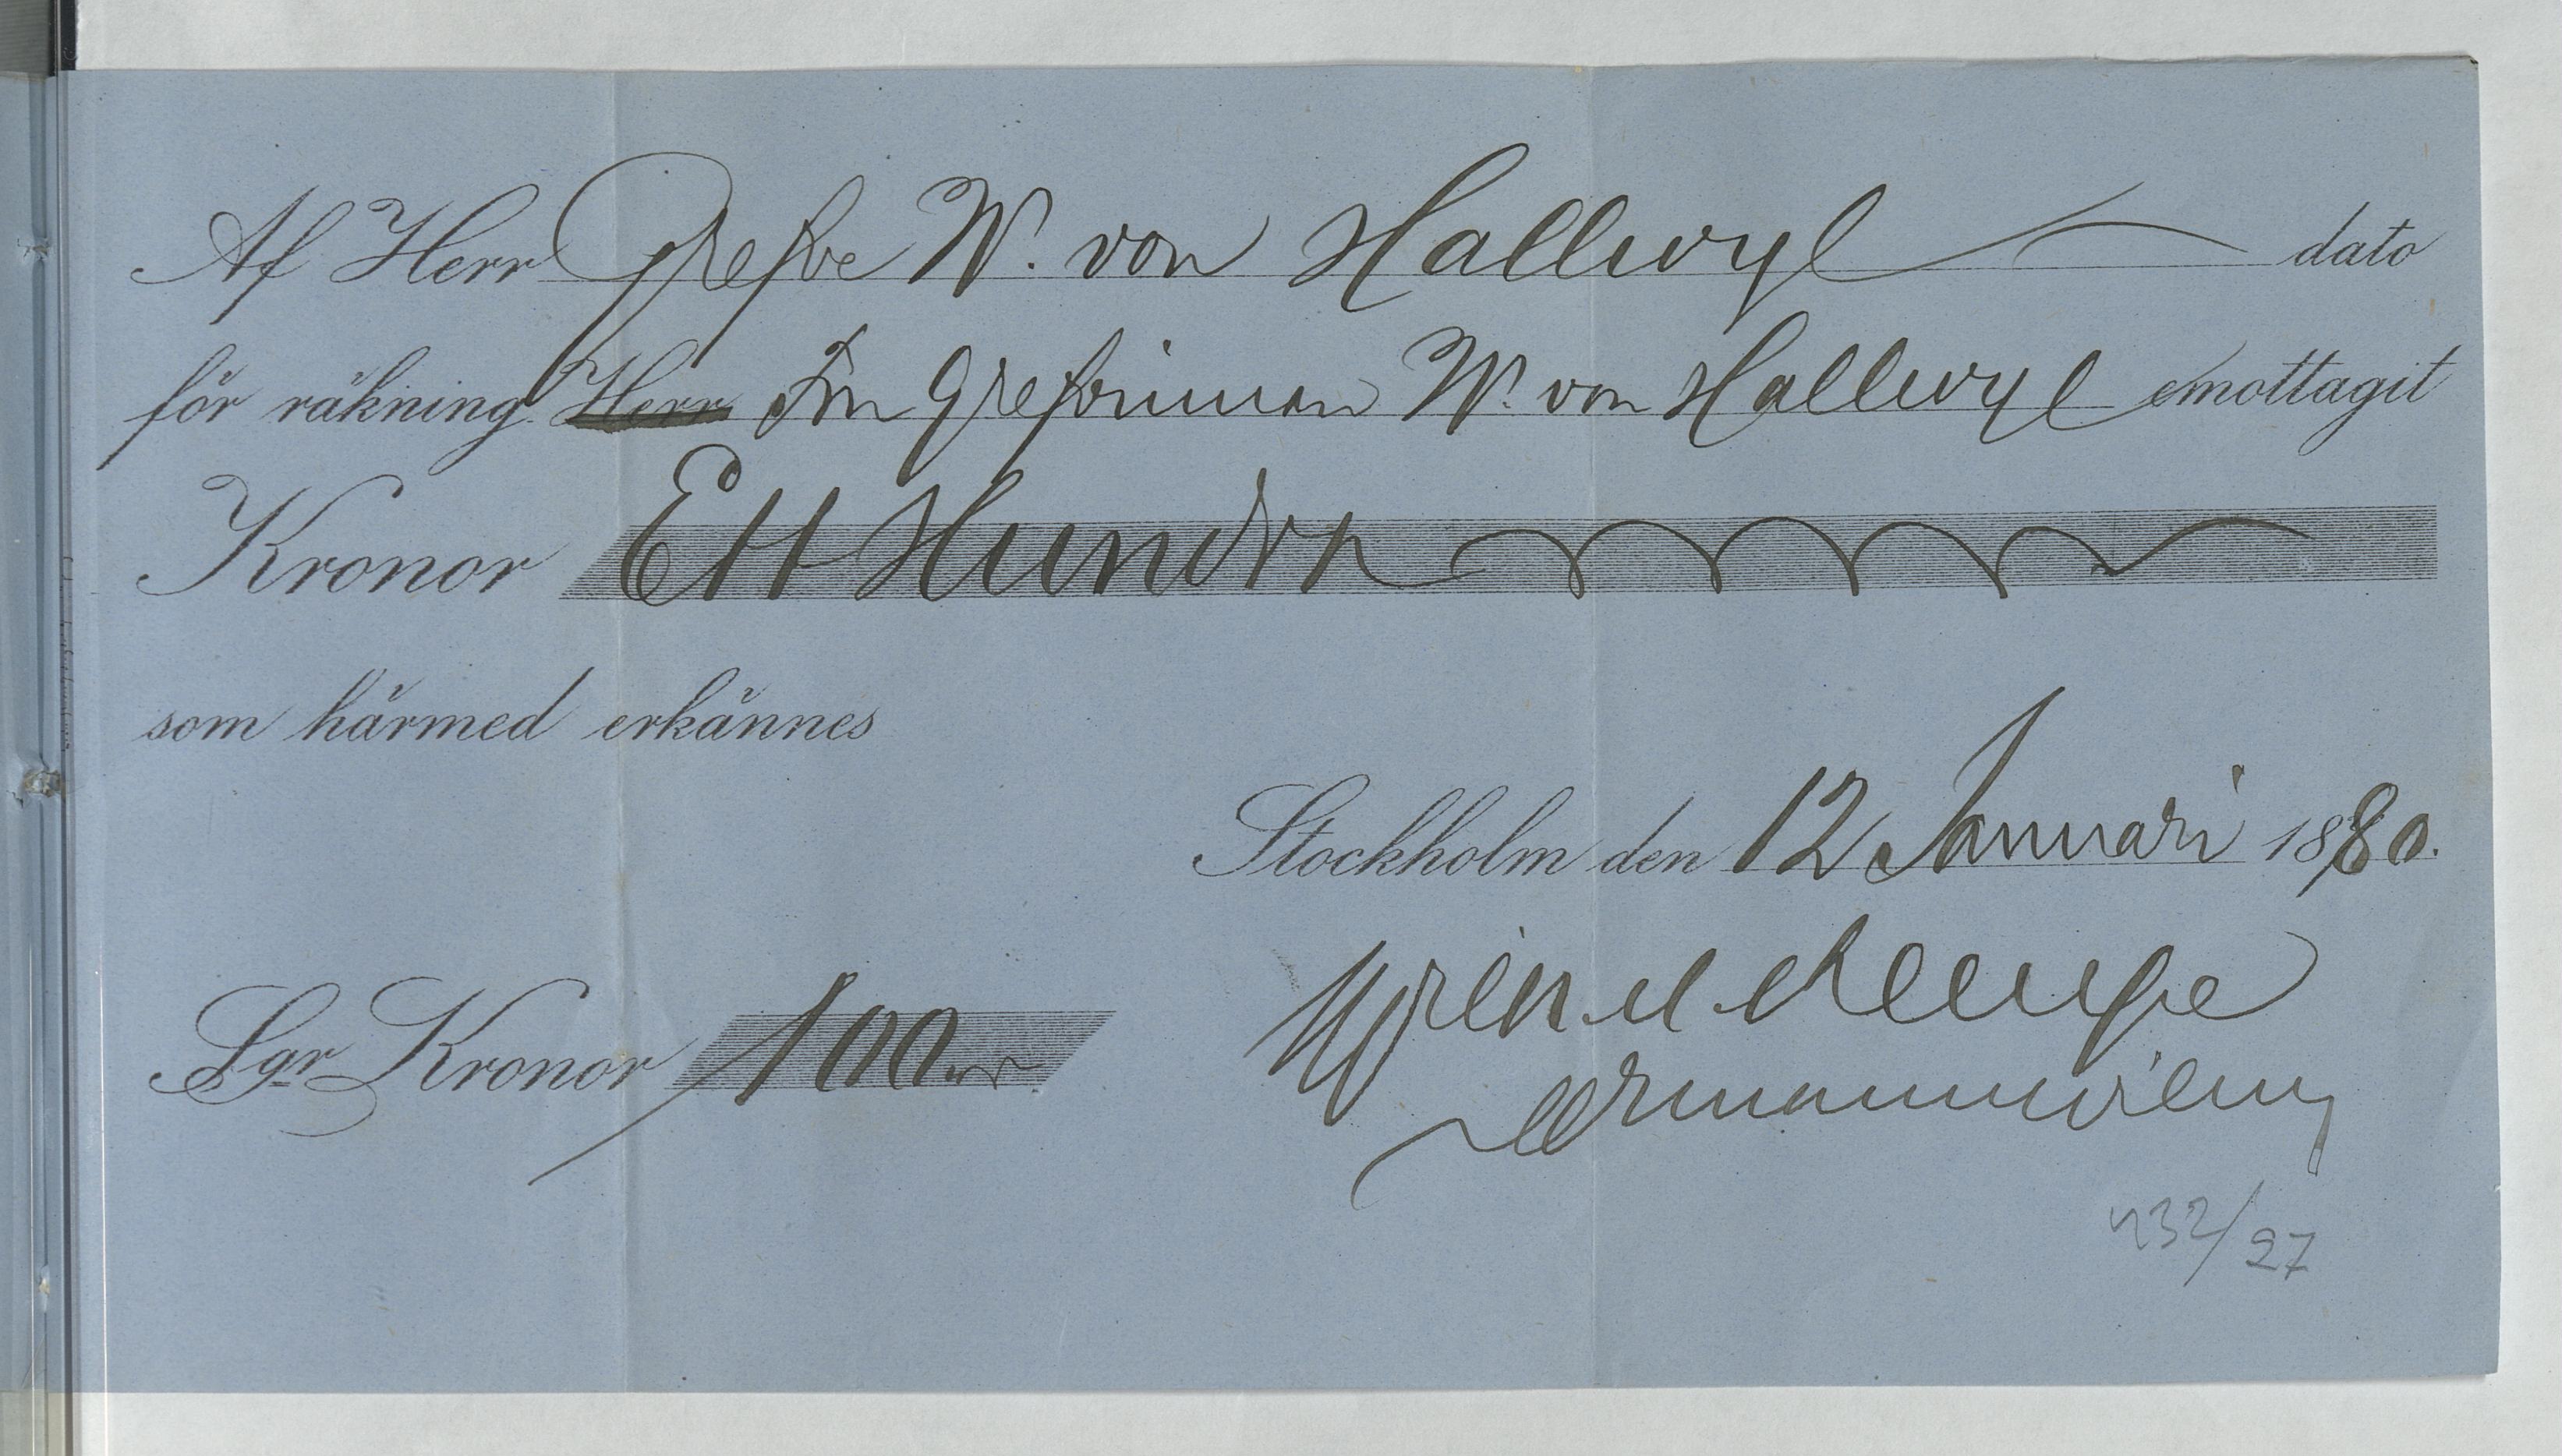 Af Herr Grefve W. von Hallwyl dato
för räkning Herr Fru Grefvinnan W. von Hallwyl emottagit
Kronor Ett Hundra
som härmed erkännes
Stockholm den 12 Januari 1880.
Sgr Kronor 100
432/27